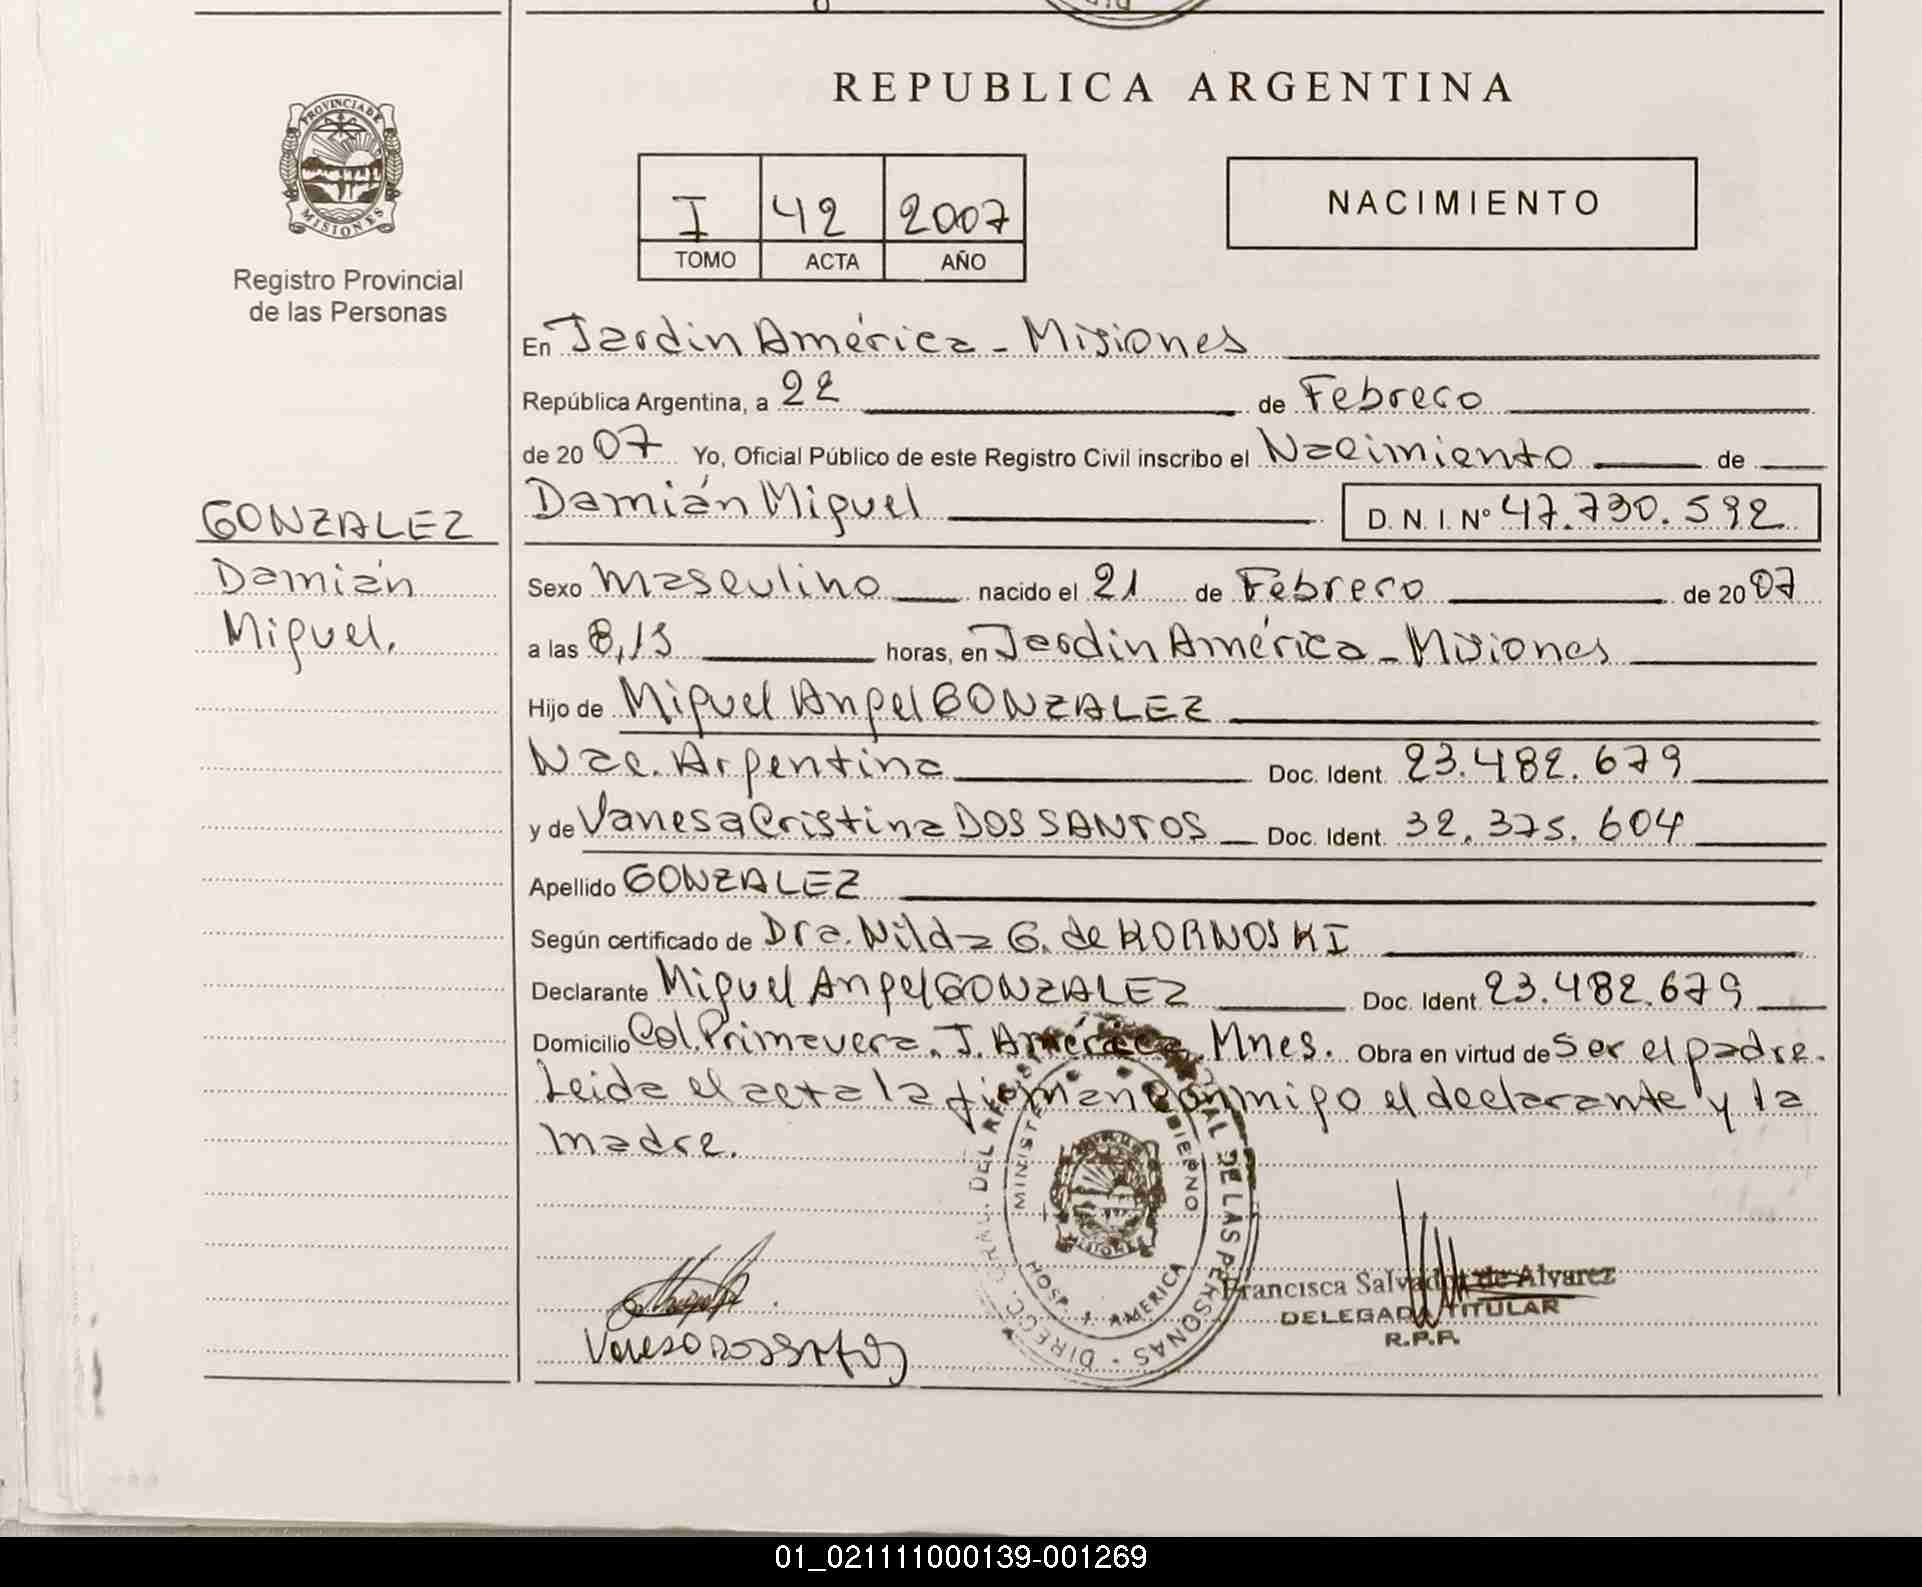 REPUBLICA ARGENTINA
PROVINCIA DE
MISIONES
Registro Provincial
de las Personas
I 42 2007
TOMO ACTA AÑO
NACIMIENTO
En Jardin América - Misiones
República Argentina, a 22 de Febrero
de 2007 Yo, Oficial Público de este Registro Civil inscribo el Nacimiento de
Damián Miguel D. N. I. Nº 47.730.592
GONZALEZ
Damián
Miguel.
Sexo Masculino nacido el 21 de Febrero de 2007
a las 8,15 horas, en Jardin América - Misiones
Hijo de Miguel Angel GONZALEZ
Nac. Argentina Doc. Ident. 23.482.679
y de Vanesa Cristina DOS SANTOS Doc. Ident. 32.375.604
Apellido GONZALEZ
Según certificado de Dra. Nilda G. de KORNOSKI
Declarante Miguel Angel GONZALEZ Doc. Ident. 23.482.679
Domicilio Col. Primavera. J. América. Mnes. Obra en virtud de ser el padre.
Leida el acta la firman conmigo el declarante y la
madre.
DIRECC. GRAL. DEL REG. DE LAS PERSONAS
HOSP. J. AMERICA
MISIONES
Francisca Salvador de Alvarez
DELEGADA TITULAR
R.P.P.
01_021111000139-001269